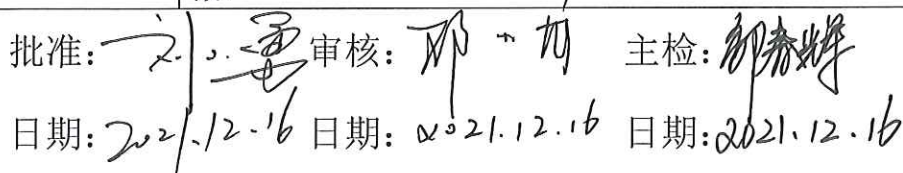 批准: 审核: 主检: 郭春辉
日期: 2021.12.16 日期: 2021.12.16 日期: 2021.12.16